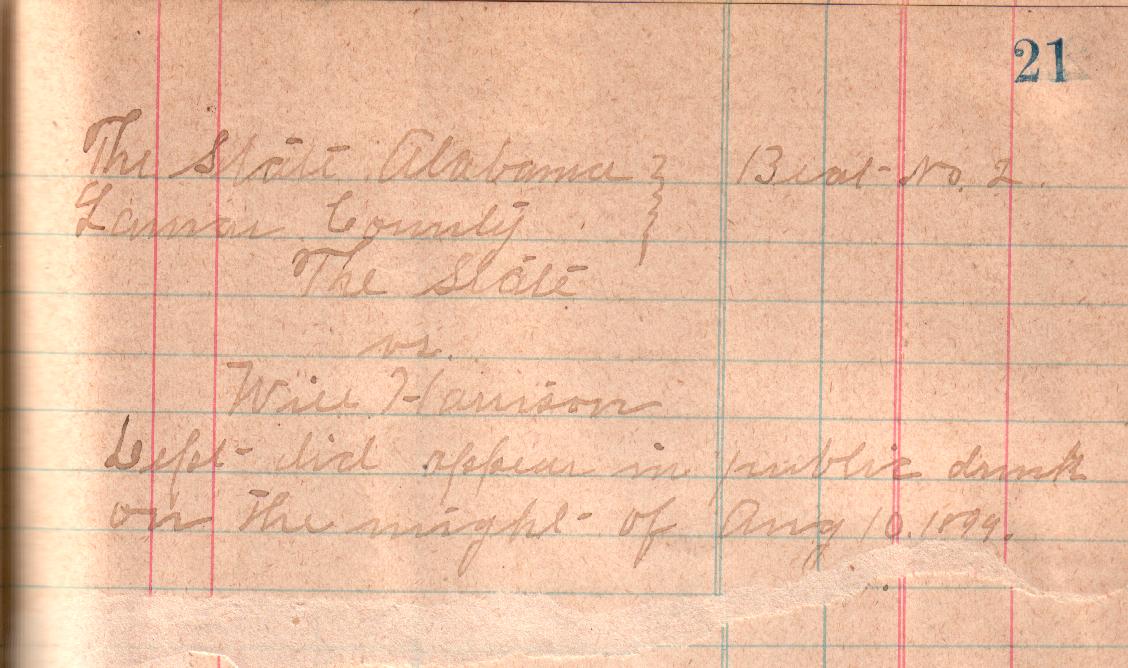 21
The State Alabama } Beat No. 2.
Lamar County
The State
vs.
Will Harrison
Deft did appear in public drunk
on the night of Aug 10. 1899.